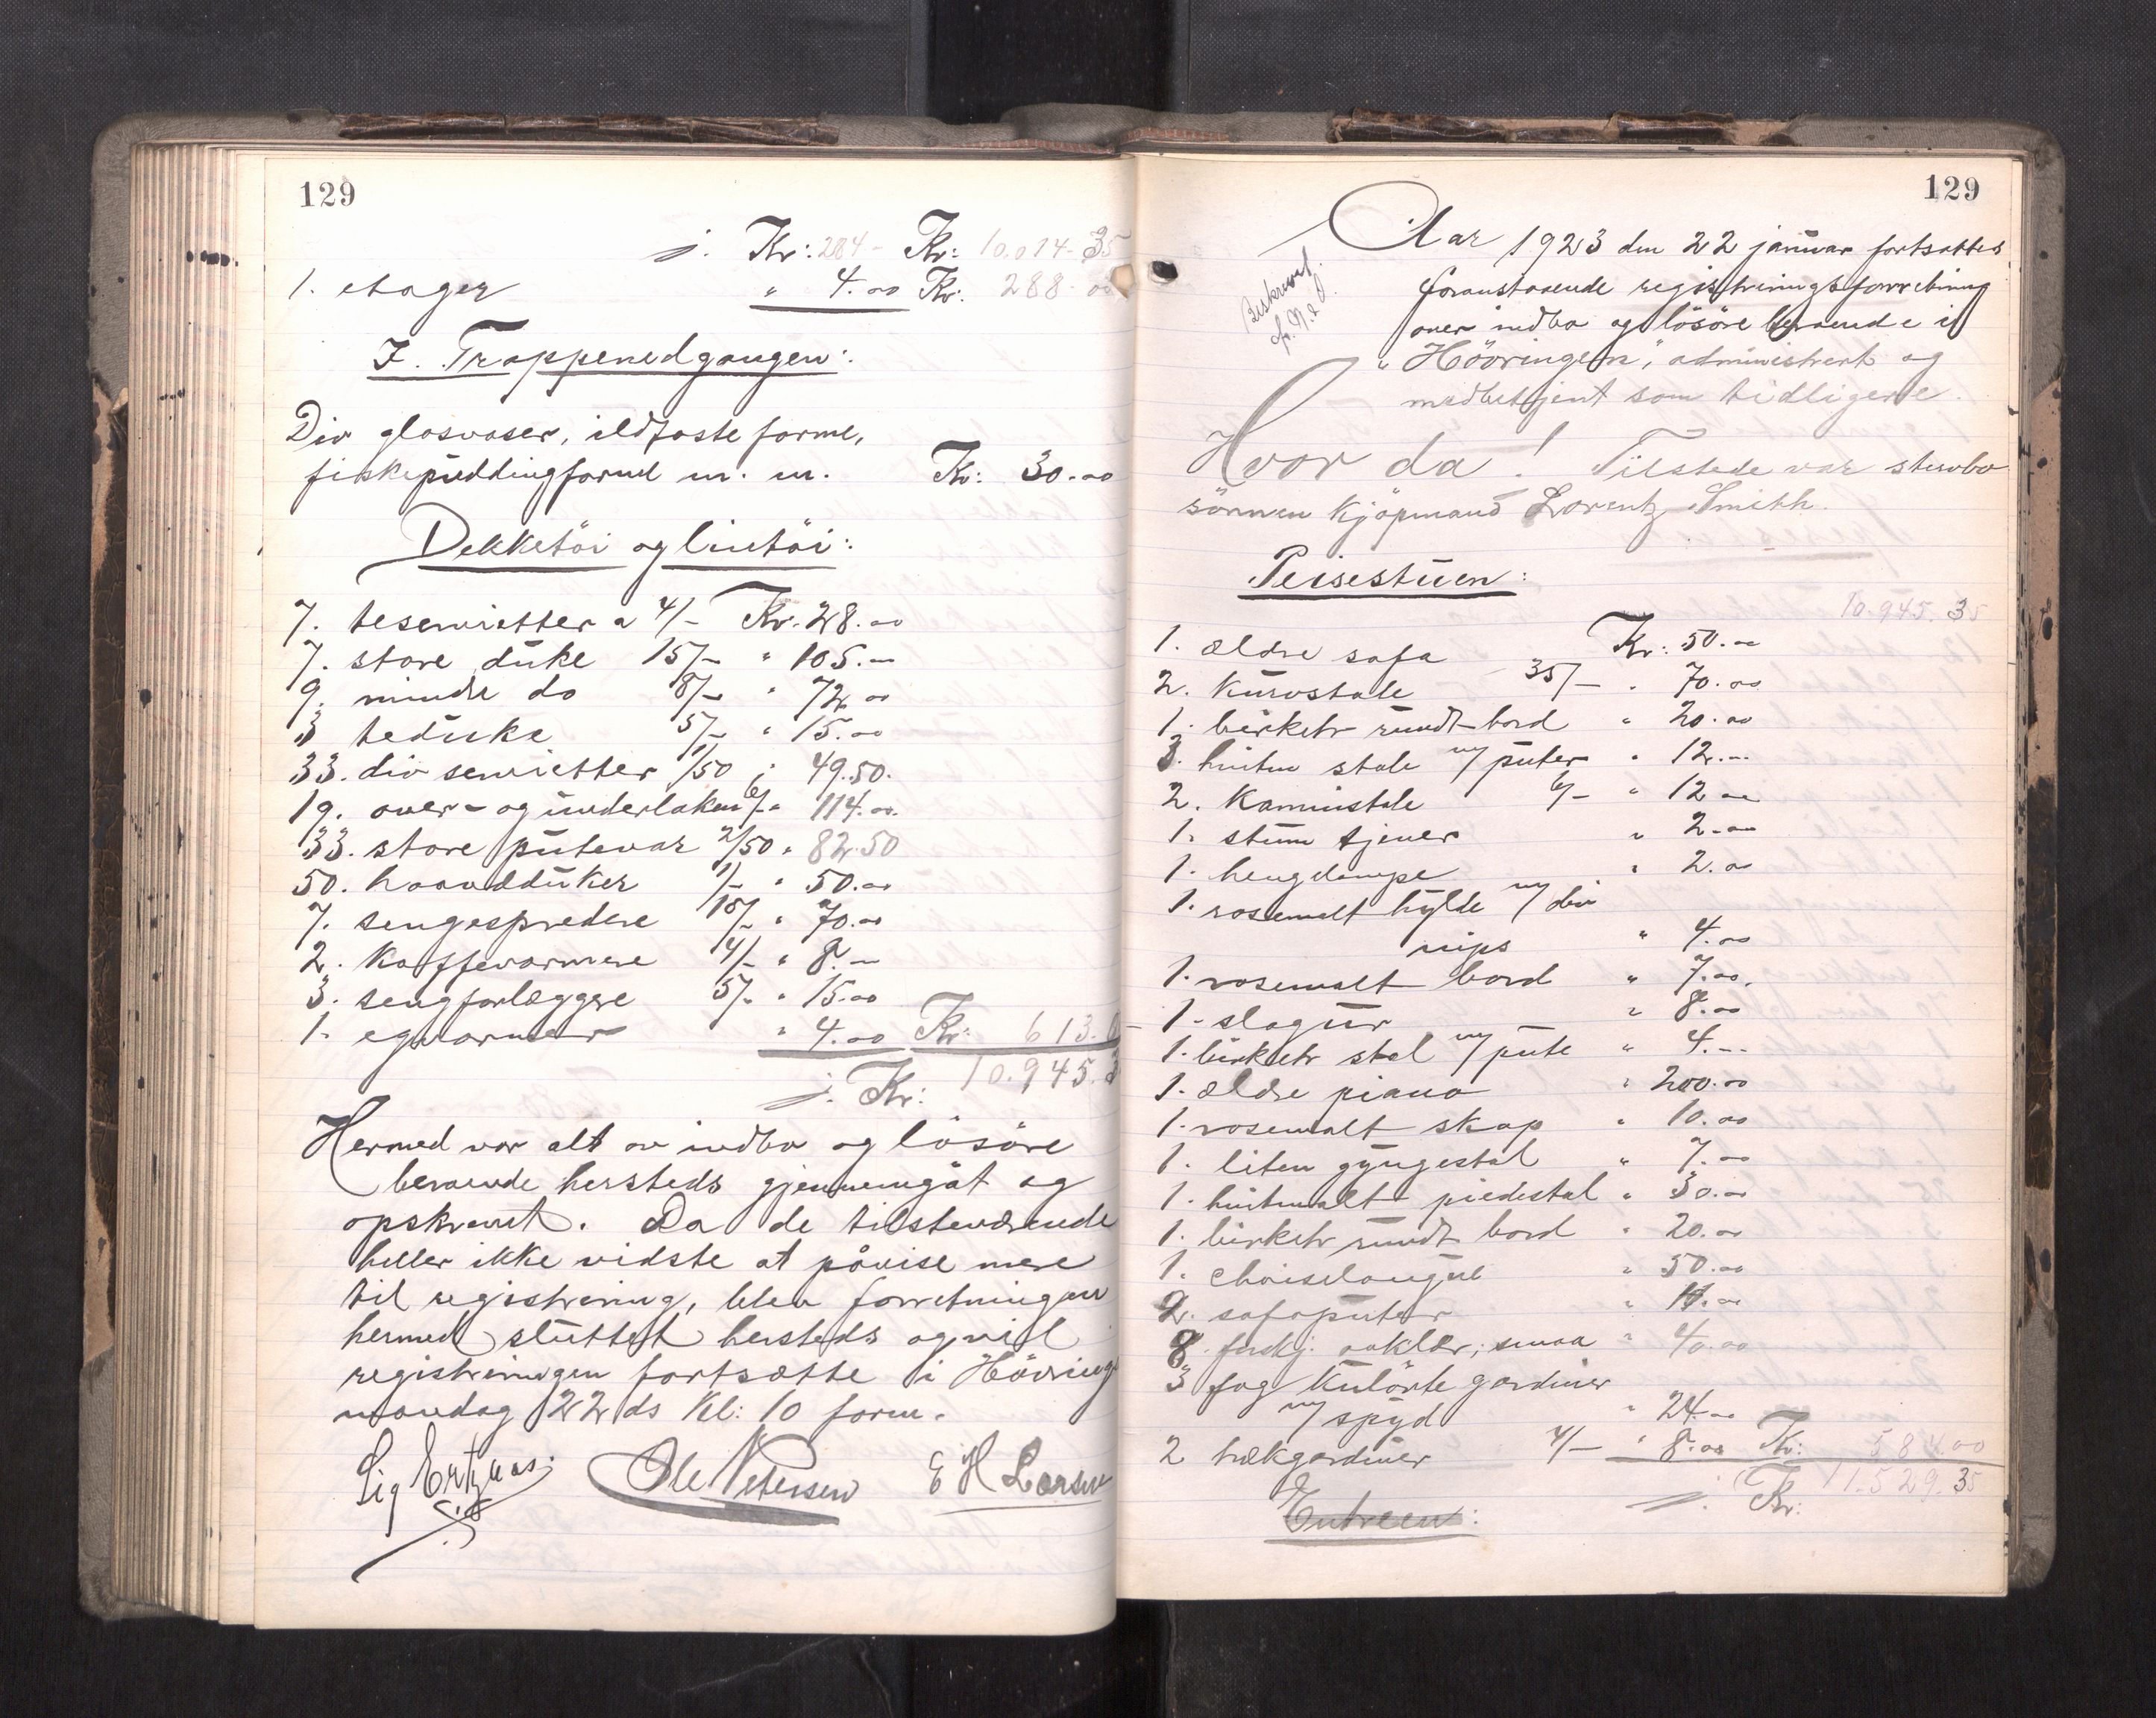 129
j. Kr: 284 - Kr: 10.014-35
1. etager " 4.00 Kr. 288.00
I. Trappenedgangen:
Div glasvaser, ildfaste forme,
fiskepuddingformd m. m. Kr: 30.00
Dekketöi og lintöi:
7. teservietter a 4/- Kr. 28.00
7. store duke 15/- " 105.-
9. mindre do 8/- " 72.00
3 teduke 5/- " 15.00
33. div servietter 1/50 " 49.50.
19. over- og underlaken 6/- " 114.00.
33. store putevar 2/50 " 82.50
50. haandduker 1/- " 50.00
7. sengespredere 10/- " 70.00
2. Kaffevarmere 4/- " 8.-
3. sengforlæggere 5/- " 15.00
1. egvarmer " 4.00 Kr: 613.
j. Kr: 10.945.3
Hermed var alt av indbo og lösöre
beroende hersteds gjennemgåt og
opskrevet. Da de tilstedeværende
heller ikke vidste at påvise mere
til registrering, blev forretningen
hermed sluttet hersteds og vil
registreringen fortsætte i Hövring
mandag 22 ds Kl: 10 form.
Sig Ertzaas. Ole Petersen E H Larsen
129
Aar 1923 den 22 januar fortsattes
foranstaaende registreringsforretning
over indbo og lösöre beroende i
"Hövringen", administrert og
medbetjent som tidligere.
Beskrevet
Hvor da! Tilstede var stervbo
sönnen Kjöpmand Lorentz Smith.
Peisestuen:
10.945.35
1. ældre sofa Kr: 50.00
2. Kurvstole 35/- " 70.00
1. birketr rundt bord " 20.00
3. hvitm stole m/ puter " 12.--
2. Kaminstole 6/- " 12.00
1. stum tjener " 2.00
1. hengelampe " 2.00
1. rosemalt hylde m/ div
nips " 4.00
1. rosemalt bord " 7.00.
1. slagur " 8.00
1. birketr stol m/ pute " 4.--
1. ældre piano " 200.00
1. rosemalt skap " 10.00
1. liten gyngestol " 7.00
1. hvitmalt piedestal " 30.00
1. birketr rundt bord " 20.00
1. chaiselongue " 50.00
2. sofaputer " 4.00
8. forskj. aaklær, smaa " 40.00
3 fag kulörte gardiner
m/ spyd " 24.00
2 trækgardiner 4/- " 8.00 Kr: 584.00
j. Kr: 11.529.35
Entreen: